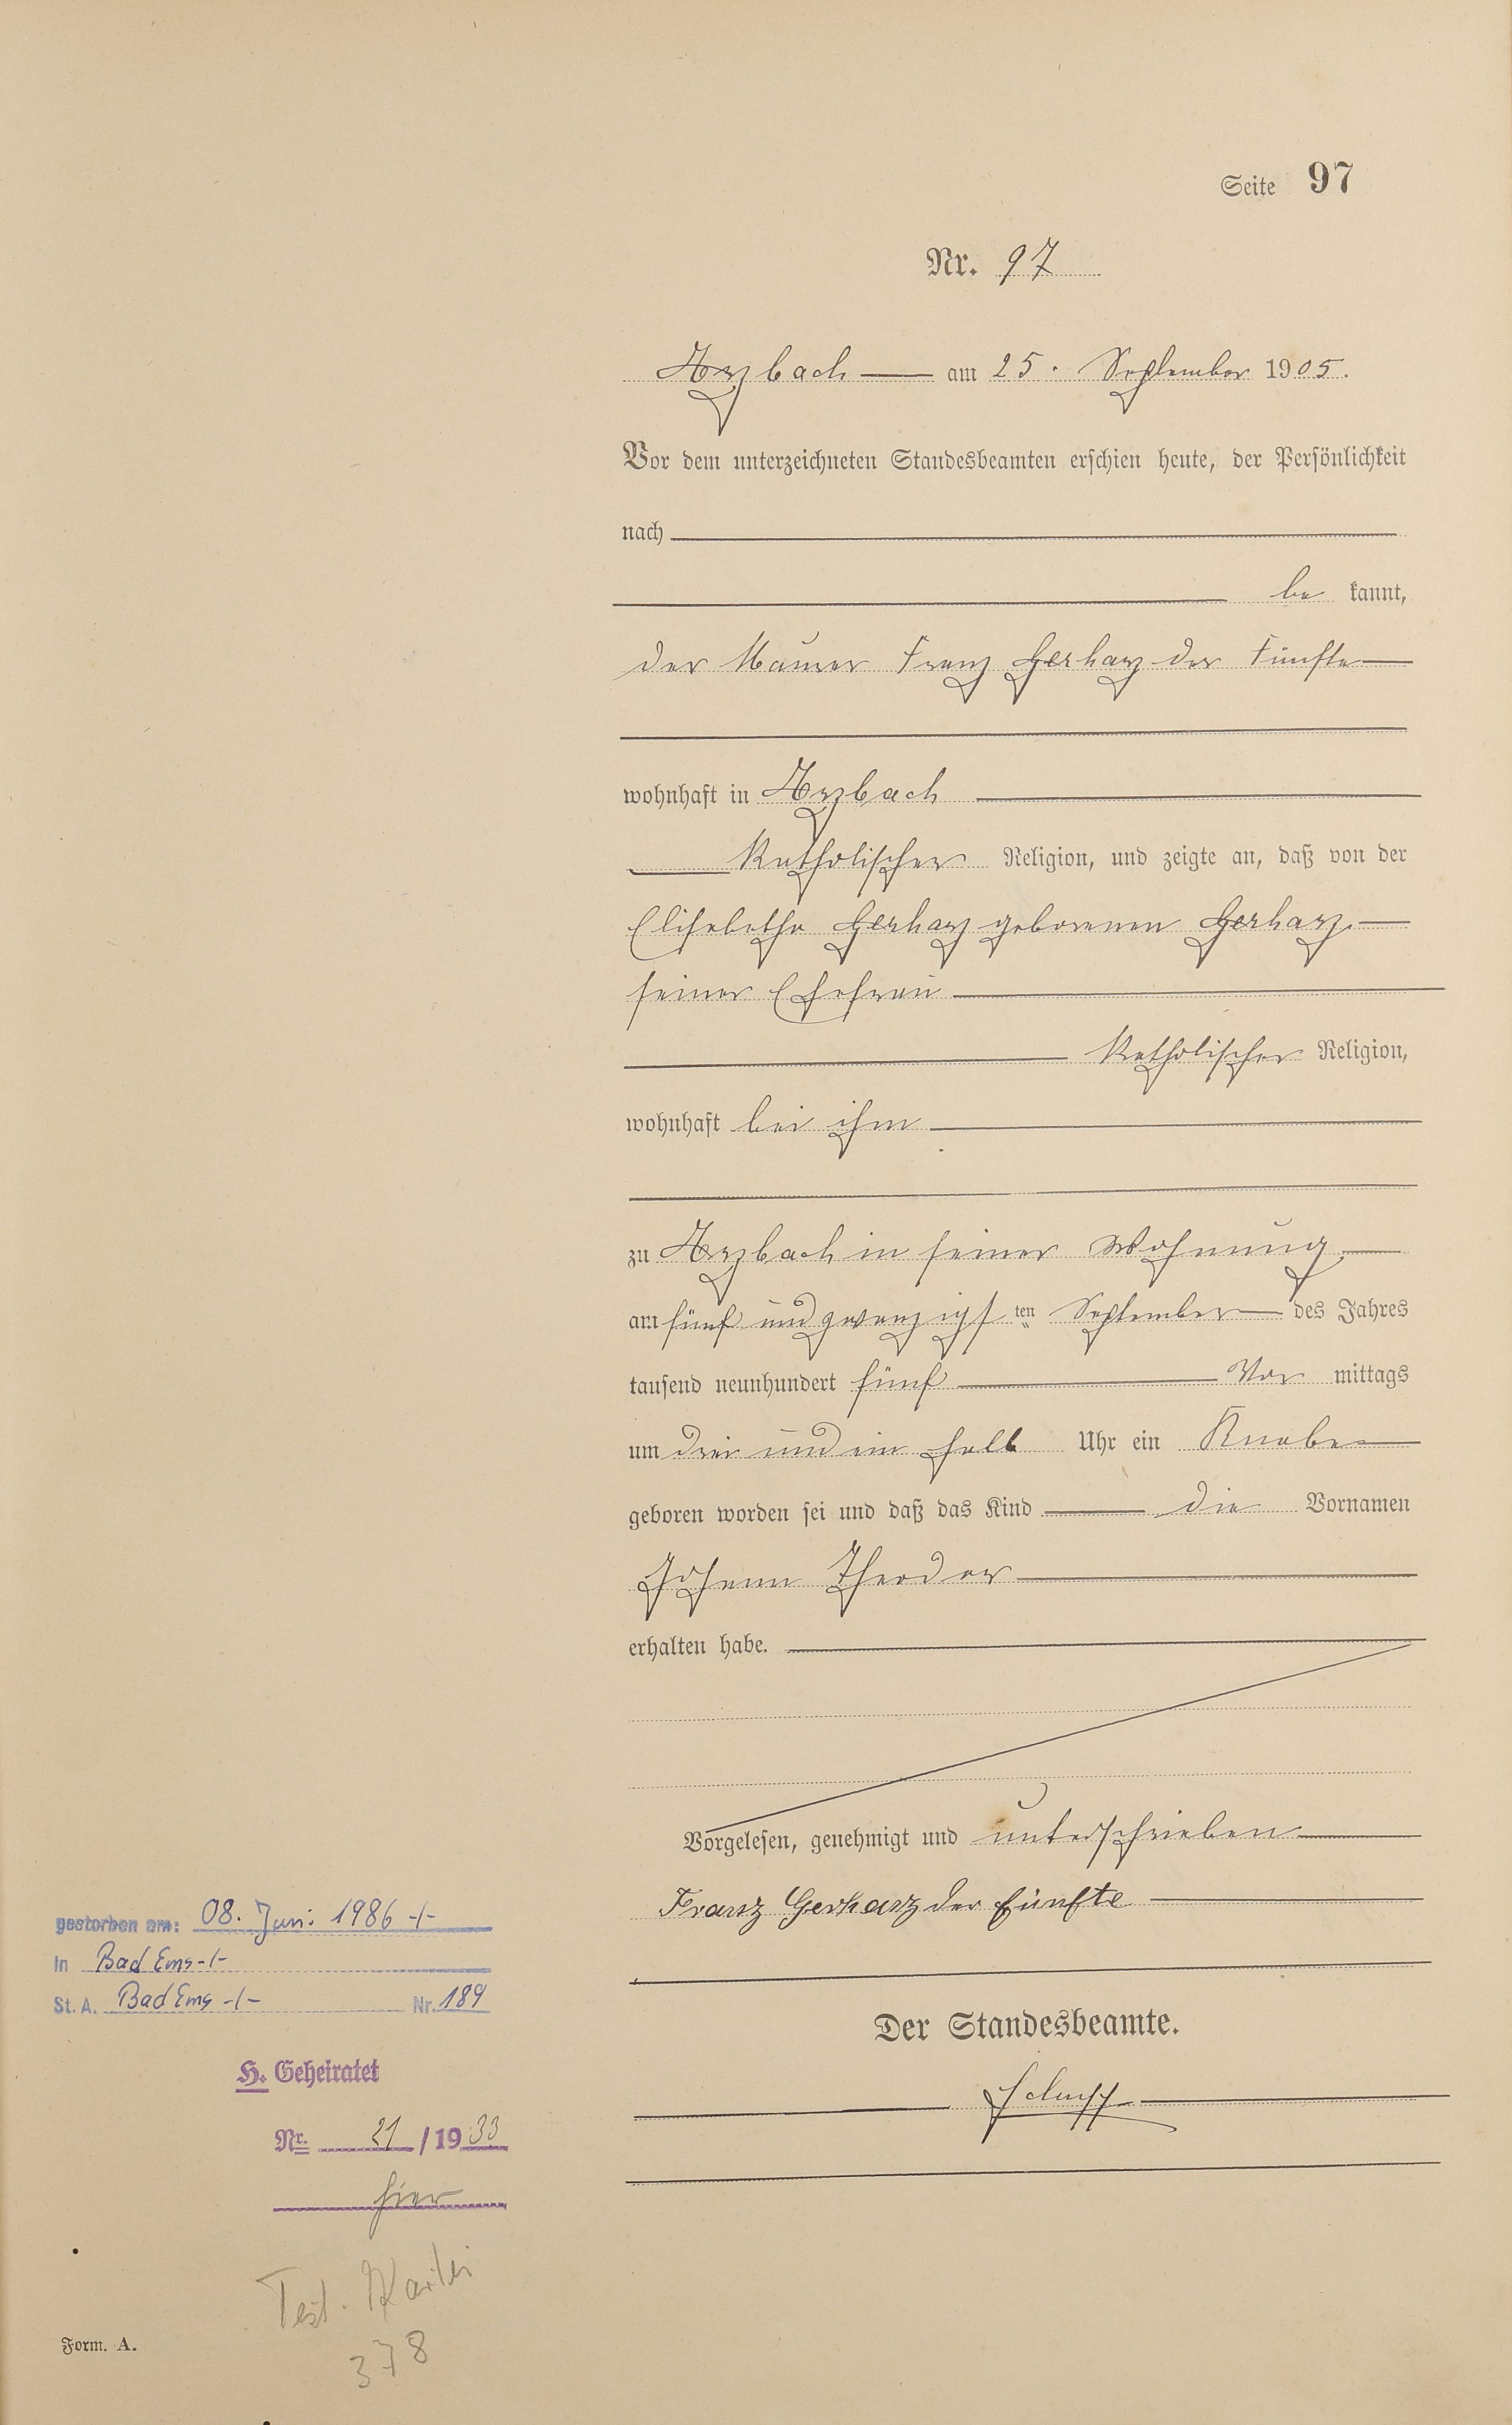 Seite 97
Nr. 97
Arzbach am 25. September 1905.
Vor dem unterzeichneten Standesbeamten erschien heute, der Persönlichkeit
nach
be kannt,
der Maurer Franz Gerharz der Fünfte
wohnhaft in Arzbach
katholischer Religion, und zeigte an, daß von der
Elisabetha Gerharz geborenen Gerharz
seiner Ehefrau
katholischer Religion,
wohnhaft bei ihm
zu Arzbach in seiner Wohnung
am fünf und zwanzigsten September des Jahres
tausend neunhundert fünf Vor mittags
um drei und ein halb Uhr ein Knabe
geboren worden sei und daß das Kind die Vornamen
Johann Theodor
erhalten habe.
Vorgelesen, genehmigt und unterschrieben
Franz Gerharz der Fünfte
Der Standesbeamte.
gestorben am: 08. Juni 1986 -/-
in Bad Ems -/-
St. A. Bad Ems -/- Nr. 189
H. Geheiratet
Nr. 21 / 1933
hier
Test. Kartei
378
Form. A.